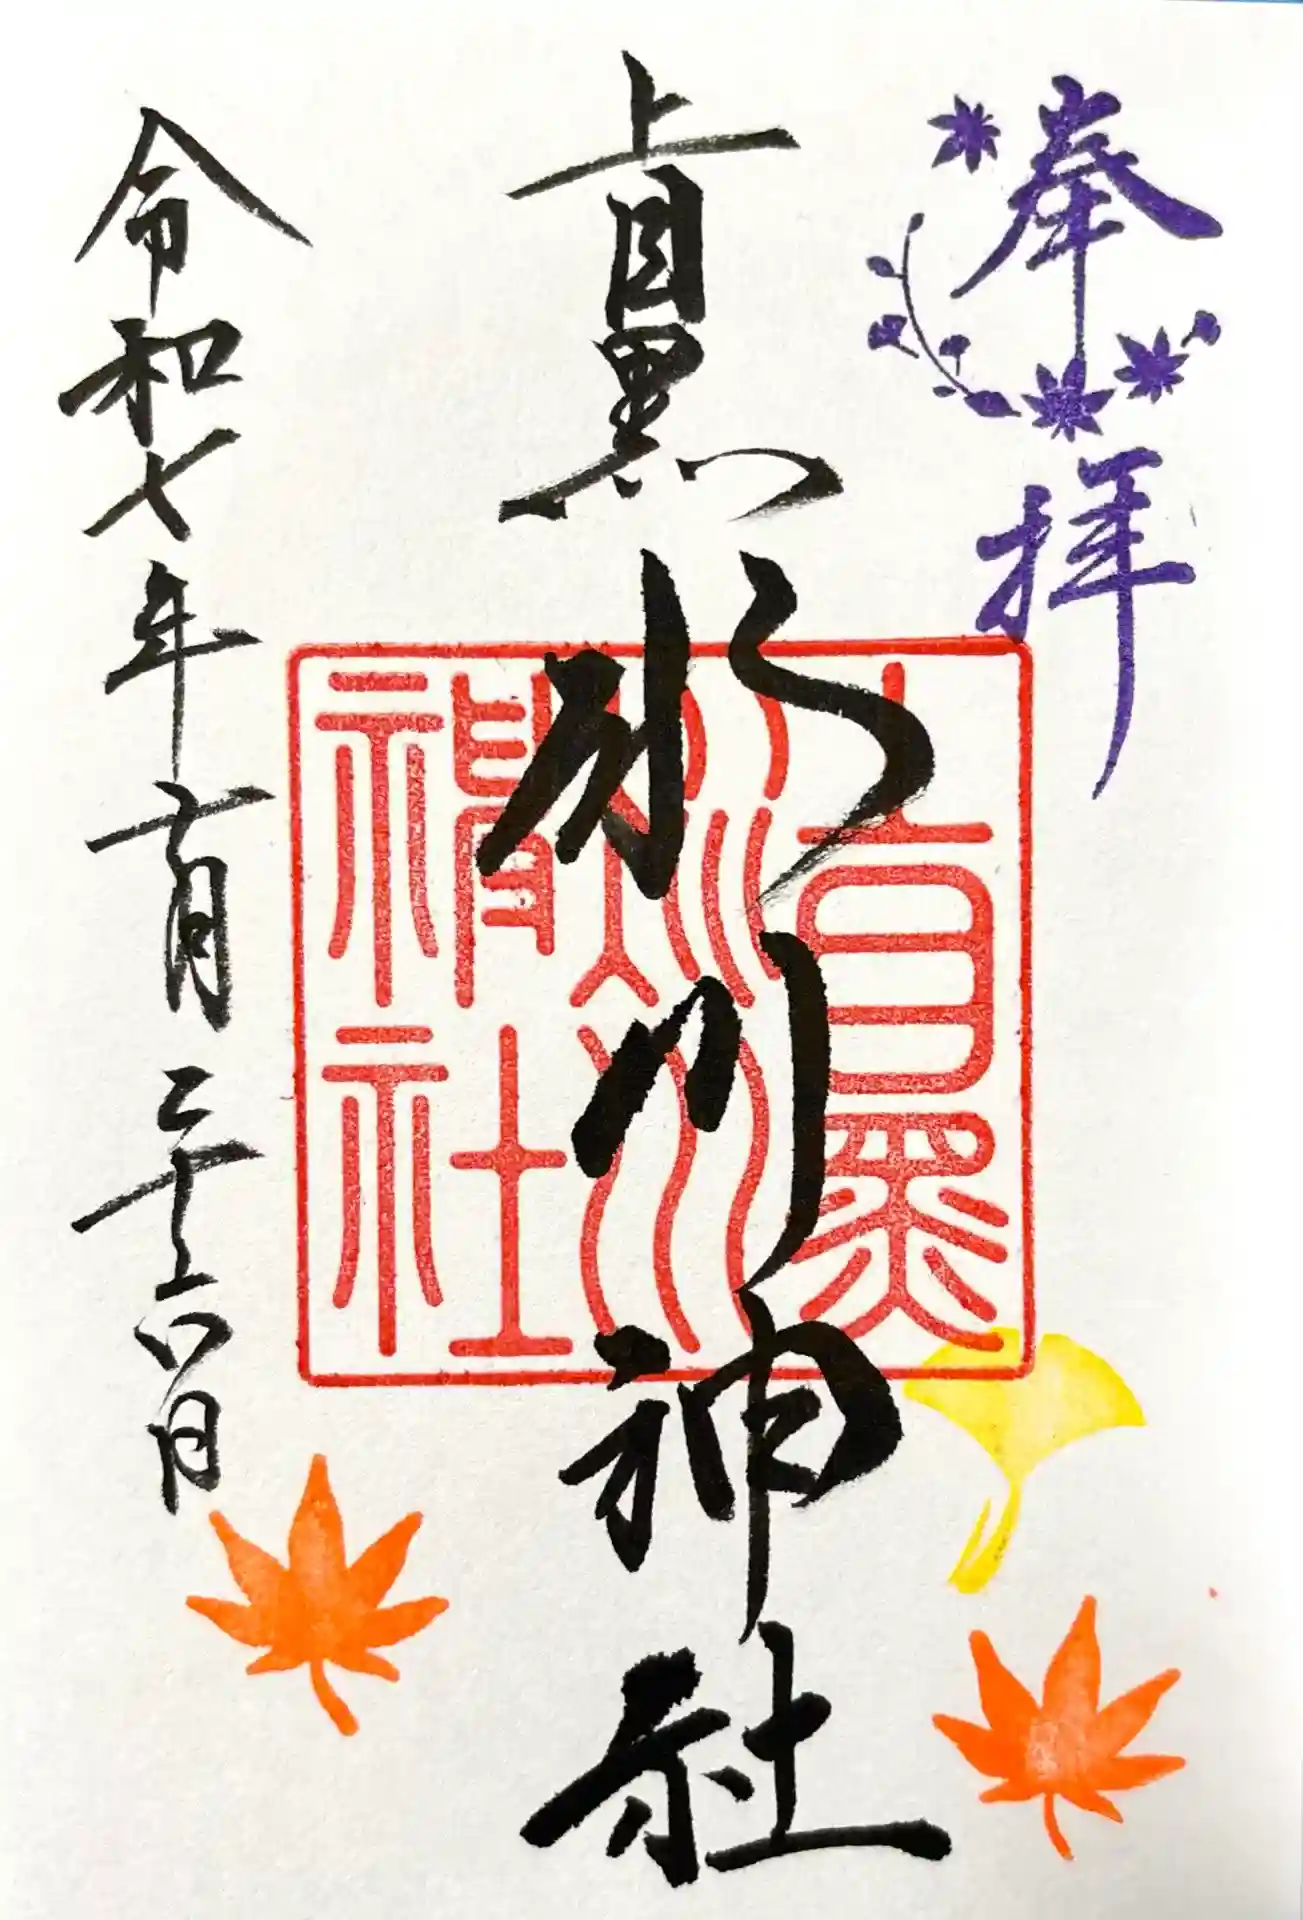 奉拝
上目黒氷川神社
令和七年十一月二十六日
上目黒
氷川
神社